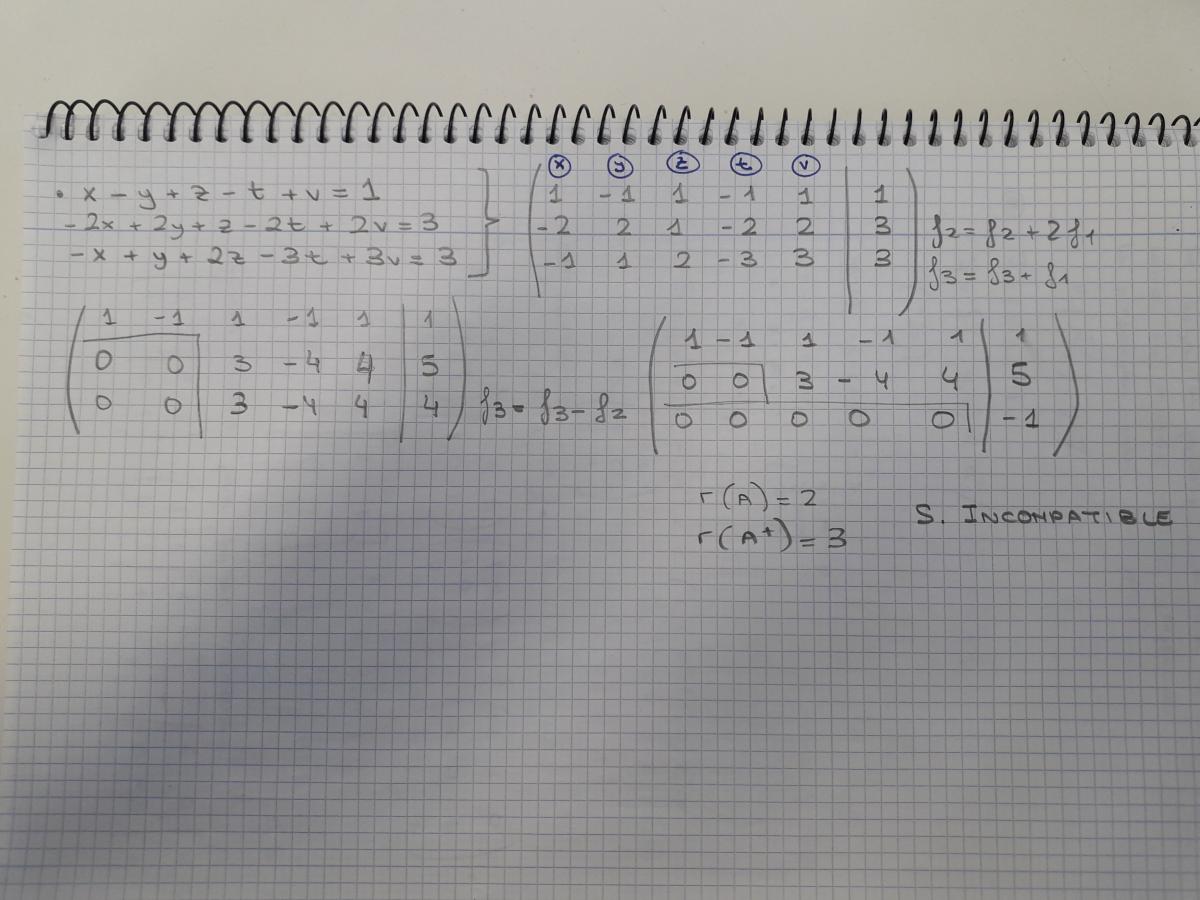 • x - y + z - t + v = 1
-2x + 2y + z - 2t + 2v = 3
-x + y + 2z - 3t + 3v = 3
x y z t v
1 -1 1 -1 1 | 1
-2 2 1 -2 2 | 3 f2 = f2 + 2f1
-1 1 2 -3 3 | 3 f3 = f3 + f1
1 -1 1 -1 1 | 1
0 0 3 -4 4 | 5
0 0 3 -4 4 | 4 f3 = f3 - f2
1 -1 1 -1 1 | 1
0 0 3 -4 4 | 5
0 0 0 0 0 | -1
r(A) = 2
r(A+) = 3
S. INCOMPATIBLE